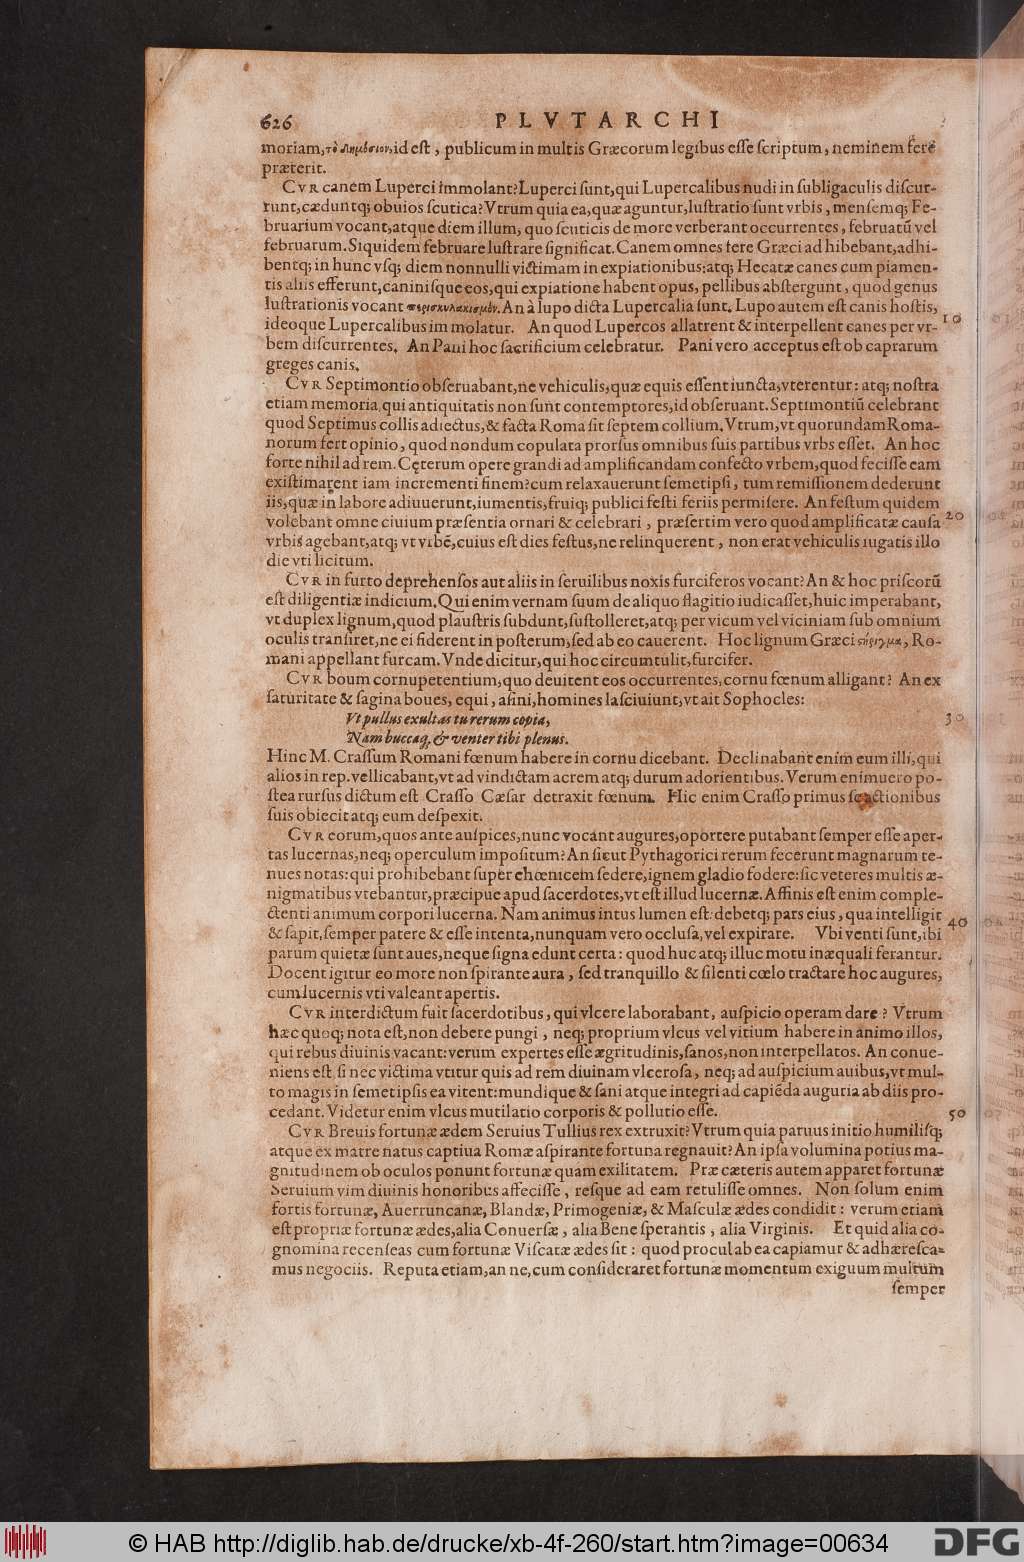 626 PLVTARCHI
moriam, τὸ Δημόσιον, id est, publicum in multis Græcorum legibus esse scriptum, neminem ferè
præterit.
CVR canem Luperci immolant? Luperci sunt, qui Lupercalibus nudi in subligaculis discur-
runt, cæduntq; obuios scutica? Vtrum quia ea, quæ aguntur, lustratio sunt vrbis, mensemq; Fe-
bruarium vocant, atque diem illum, quo scuticis de more verberant occurrentes, februatū vel
februatum. Siquidem februare lustrare significat. Canem omnes fere Græci adhibebant, adhi-
bentq; in hunc vsq; diem nonnulli victimam in expiationibus: atq; Hecatæ canes cum piamen-
tis aliis efferunt, caninisque eos, qui expiatione habent opus, pellibus abstergunt, quod genus
lustrationis vocant περισκυλακισμόν. An à lupo dicta Lupercalia sunt. Lupo autem est canis hostis,
ideoque Lupercalibus immolatur. An quod Lupercos allatrent & interpellent canes per vr- 10
bem discurrentes. An Pani hoc sacrificium celebratur. Pani vero acceptus est ob caprarum
greges canis.
CVR Septimontio obseruabant, ne vehiculis, quæ equis essent iuncta, vterentur: atq; nostra
etiam memoria qui antiquitatis non sunt contemptores, id obseruant. Septimontiū celebrant
quod Septimus collis adiectus, & facta Roma sit septem collium. Vtrum, vt quorundam Roma-
norum fert opinio, quod nondum copulata prorsus omnibus suis partibus vrbs esset. An hoc
forte nihil ad rem. Cęterum opere grandi ad amplificandam confecto vrbem, quod fecisse eam
existimarent iam incrementi finem? cum relaxauerunt semetipsi, tum remissionem dederunt
iis, quæ in labore adiuuerunt, iumentis, fruiq; publici festi feriis permisere. An festum quidem
volebant omne ciuium præsentia ornari & celebrari, præsertim vero quod amplificatæ causa 20
vrbis agebant, atq; vt vrbē, cuius est dies festus, ne relinquerent, non erat vehiculis iugatis illo
die vti licitum.
CVR in furto deprehensos aut aliis in seruilibus noxis furciferos vocant? An & hoc priscorū
est diligentiæ indicium. Qui enim vernam suum de aliquo flagitio iudicasset, huic imperabant,
vt duplex lignum, quod plaustris subdunt, sustolleret, atq; per vicum vel viciniam sub omnium
oculis transiret, ne ei fiderent in posterum, sed ab eo cauerent. Hoc lignum Græci στήριγμα, Ro-
mani appellant furcam. Vnde dicitur, qui hoc circumtulit, furcifer.
CVR boum cornupetentium, quo deuitent eos occurrentes, cornu fœnum alligant? An ex
saturitate & sagina boues, equi, asini, homines lasciuiunt, vt ait Sophocles:
Vt pullus exultas tu rerum copia, 30
Nam buccaq, & venter tibi plenus.
Hinc M. Crassum Romani fœnum habere in cornu dicebant. Declinabant enim eum illi, qui
alios in rep. vellicabant, vt ad vindictam acrem atq; durum adorientibus. Verum enimuero po-
stea rursus dictum est Crasso Cæsar detraxit fœnum. Hic enim Crasso primus se actionibus
suis obiecit atq; eum despexit.
CVR eorum, quos ante auspices, nunc vocant augures, oportere putabant semper esse aper-
tas lucernas, neq; operculum impositum? An sicut Pythagorici rerum fecerunt magnarum te-
nues notas: qui prohibebant super chœnicem sedere, ignem gladio fodere: sic veteres multis æ-
nigmatibus vtebantur, præcipue apud sacerdotes, vt est illud lucernæ. Affinis est enim comple-
ctenti animum corpori lucerna. Nam animus intus lumen est: debetq; pars eius, qua intelligit
& sapit, semper patere & esse intenta, nunquam vero occlusa, vel expirare. Vbi venti sunt, ibi 40
parum quietæ sunt aues, neque signa edunt certa: quod huc atq; illuc motu inæquali ferantur.
Docent igitur eo more non spirante aura, sed tranquillo & silenti cœlo tractare hoc augures,
cum lucernis vti valeant apertis.
CVR interdictum fuit sacerdotibus, qui vlcere laborabant, auspicio operam dare? Vtrum
hæc quoq; nota est, non debere pungi, neq; proprium vlcus vel vitium habere in animo illos,
qui rebus diuinis vacant: verum expertes esse ægritudinis, sanos, non interpellatos. An conue-
niens est si nec victima vtitur quis ad rem diuinam vlcerosa, neq; ad auspicium auibus, vt mul-
to magis in semetipsis ea vitent: mundique & sani atque integri ad capiēda auguria ab diis pro-
cedant. Videtur enim vlcus mutilatio corporis & pollutio esse. 50
CVR Breuis fortunæ ædem Seruius Tullius rex extruxit? Vtrum quia paruus initio humilisq;
atque ex matre natus captiua Romæ aspirante fortuna regnauit? An ipsa volumina potius ma-
gnitudinem ob oculos ponunt fortunæ quàm exilitatem. Præ cæteris autem apparet fortunæ
Seruium vim diuinis honoribus affecisse, resque ad eam retulisse omnes. Non solum enim
fortis fortunæ, Auerruncanæ, Blandæ, Primogeniæ, & Masculæ ædes condidit: verum etiam
est propriæ fortunæ ædes, alia Conuersæ, alia Bene sperantis, alia Virginis. Et quid alia co-
gnomina recenseas cum fortunæ Viscatæ ædes sit: quod procul ab ea capiamur & adhæresca-
mus negociis. Reputa etiam, an ne, cum consideraret fortunæ momentum exiguum multum
semper
© HAB http://diglib.hab.de/drucke/xb-4f-260/start.htm?image=00634
DFG